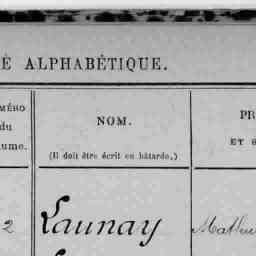 É ALPHABÉTIQUE.
MÉRO
du
ume.
NOM.
(Il doit être écrit en bâtarde.)
PR
ET
2
Launay